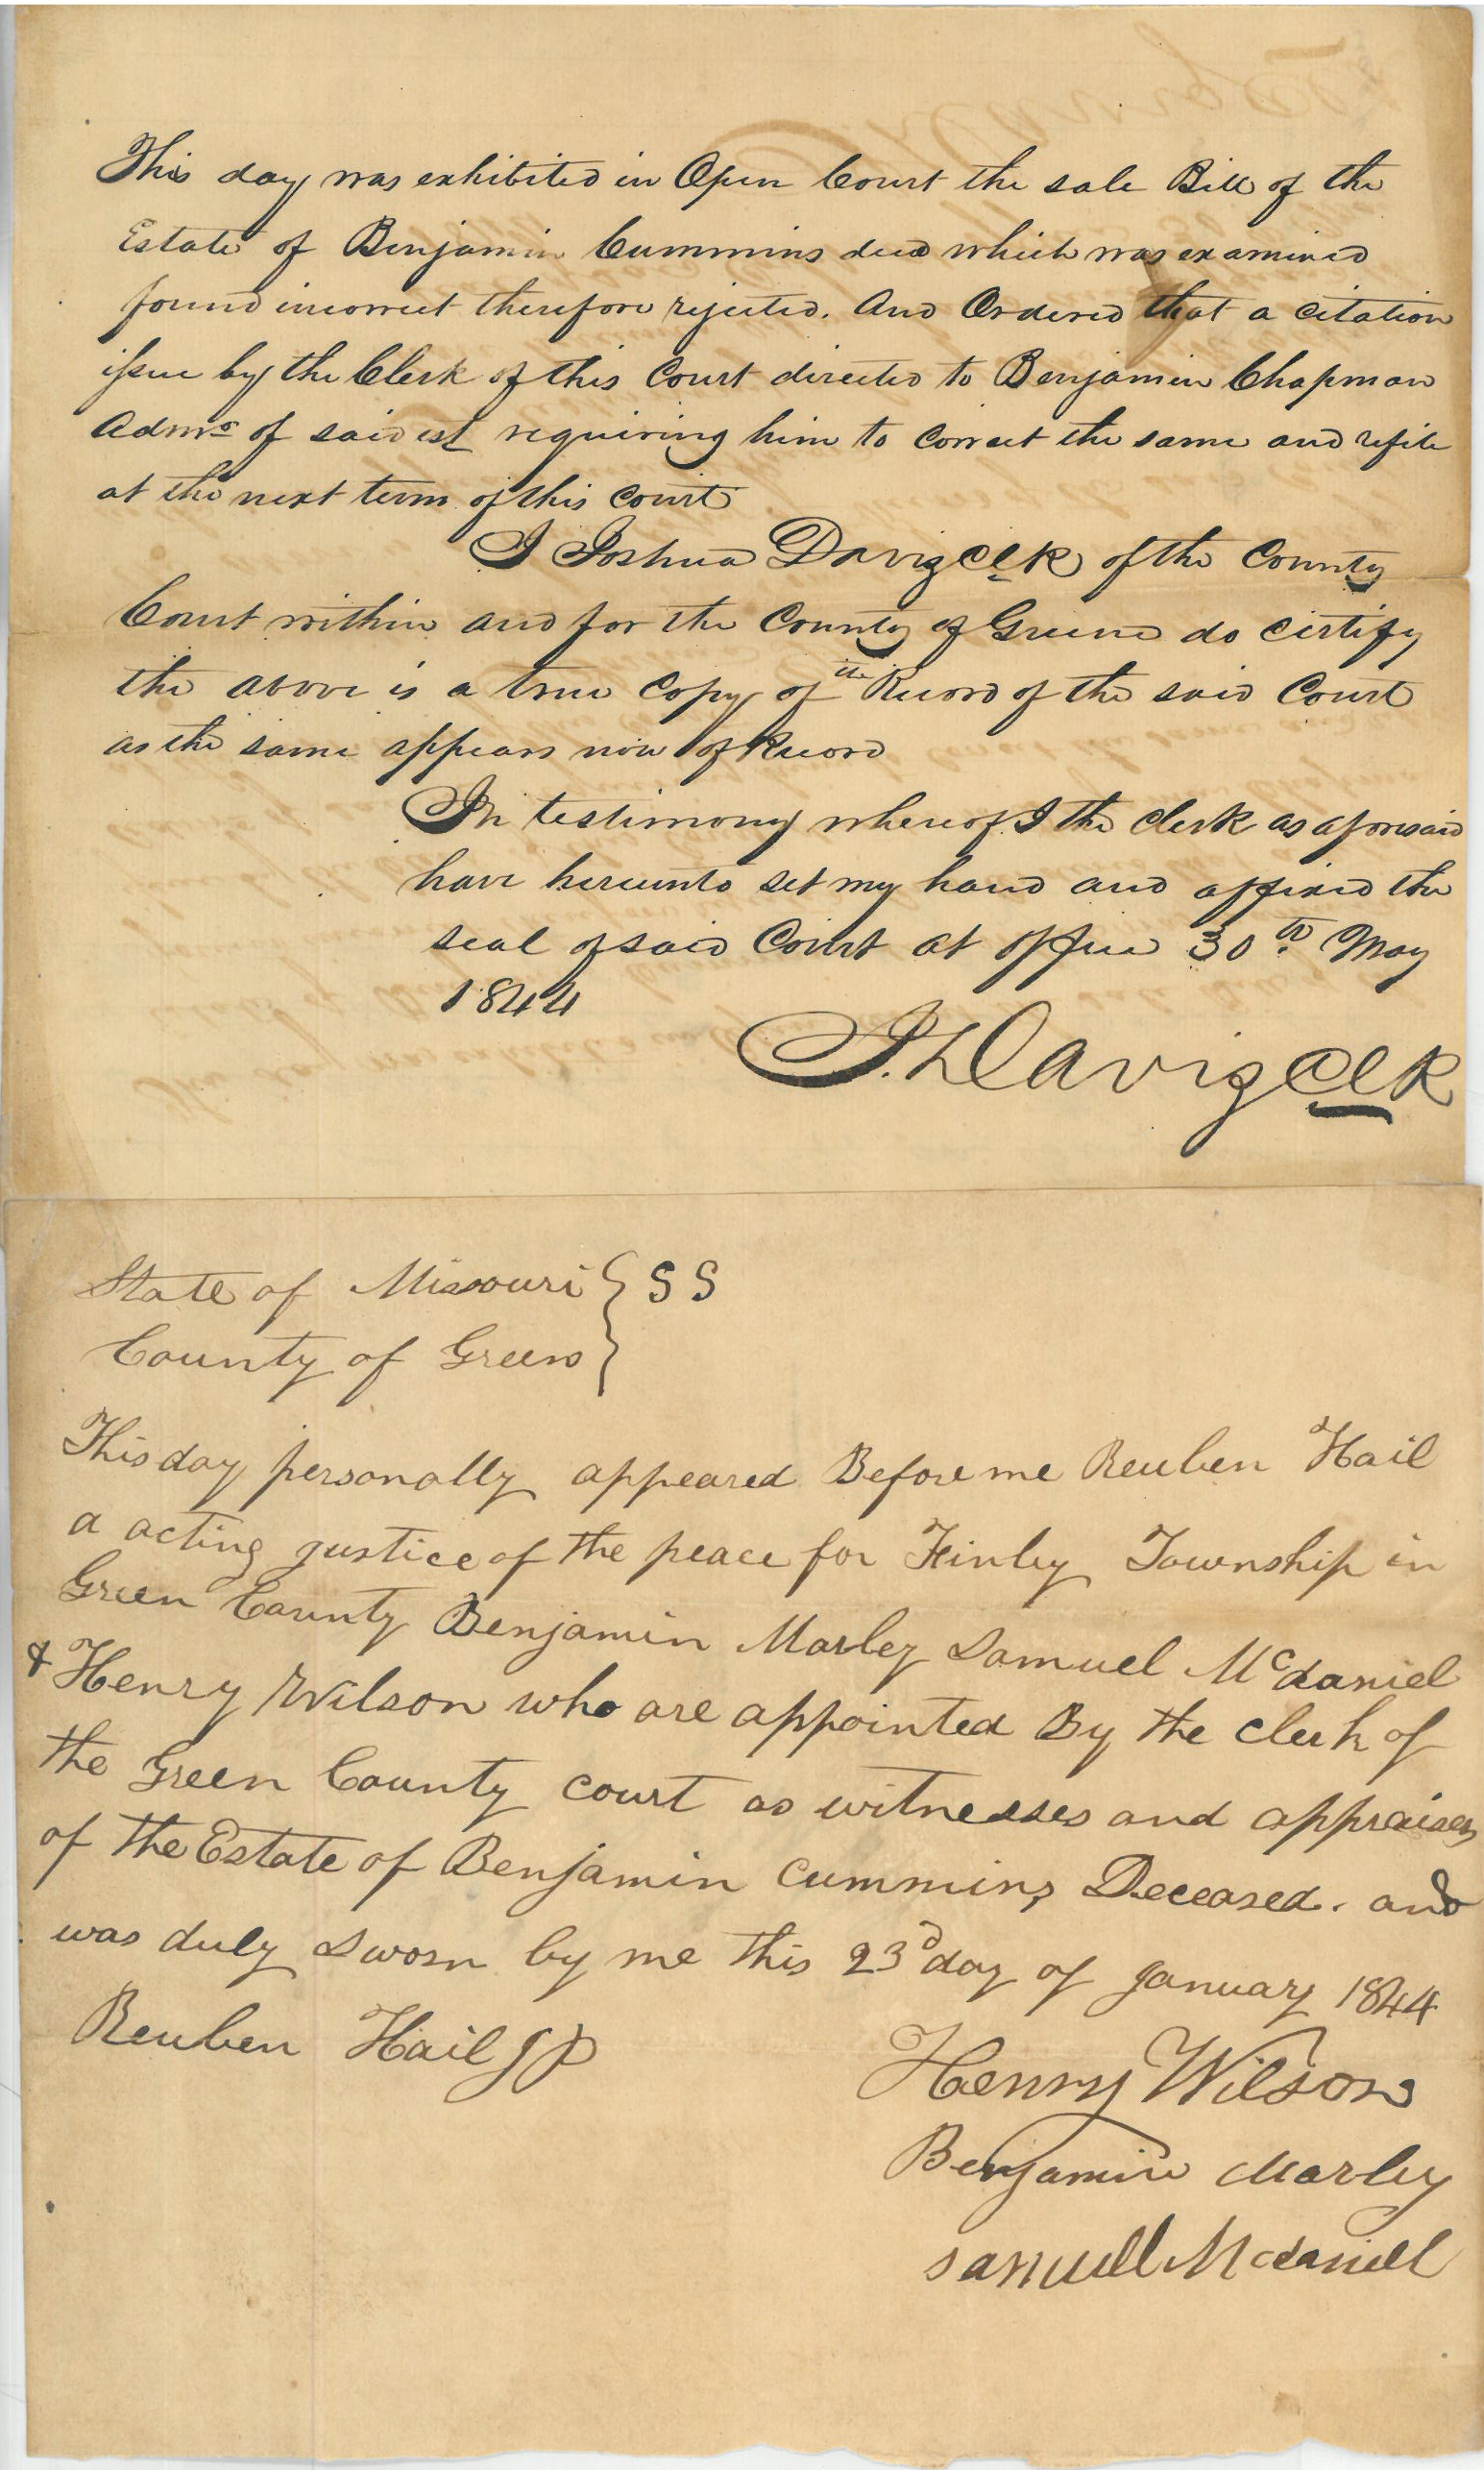 This day was exhibited in Open Court the sale Bill of the
Estate of Benjamin Cummins decd which was examined
found incorrect therefore rejected. And Ordered that a citation
issue by the Clerk of this Court directed to Benjamin Chapman
Admr of said est requiring him to correct the same and refile
at the next term of this court
I Joshua Davis Clk of the County
Court within and for the County of Greene do certify
the above is a true copy of the Record of the said Court
as the same appears now of Record
In testimony whereof I the clerk as aforesaid
have hereunto set my hand and affixed the
seal of said Court at office 30th May
1844
J. Davis Clk
State of Missouri } SS
County of Green }
This day personally appeared Before me Reuben Hail
a acting justice of the peace for Finley Township in
Green County Benjamin Marley Samuel McDaniel
& Henry Wilson who are appointed By the clerk of
the Green County court as witnesses and appraisers
of the Estate of Benjamin Cummins Deceased. and
was duly Sworn by me this 23d day of January 1844
Reuben Hail JP
Henry Wilson
Benjamin Marley
Samuell Mcdaniell